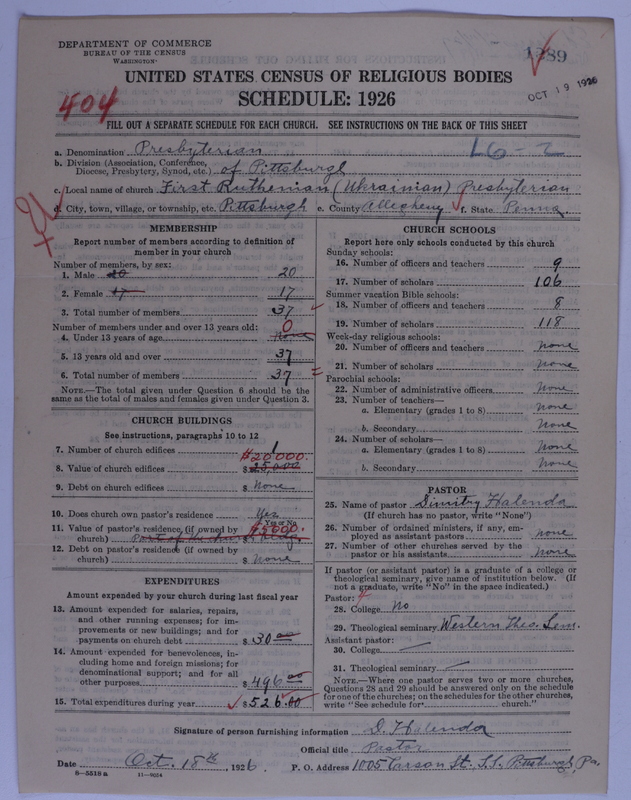 DEPARTMENT OF COMMERCE
BUREAU OF THE CENSUS
WASHINGTON
1389
OCT 19 1926
UNITED STATES CENSUS OF RELIGIOUS BODIES
SCHEDULE: 1926
404
FILL OUT A SEPARATE SCHEDULE FOR EACH CHURCH. SEE INSTRUCTIONS ON THE BACK OF THIS SHEET
a. Denomination Presbyterian
b. Division (Association, Conference, Diocese, Presbytery, Synod, etc.) of Pittsburgh
c. Local name of church First Ruthenian (Ukrainian) Presbyterian
d. City, town, village, or township, etc. Pittsburgh e. County Allegheny f. State Penna
MEMBERSHIP
Report number of members according to definition of
member in your church
Number of members, by sex:
1. Male 20 20
2. Female 17 17
3. Total number of members 37
Number of members under and over 13 years old:
4. Under 13 years of age none 0
5. 13 years old and over 37
6. Total number of members 37
NOTE.—The total given under Question 6 should be
same as the total of males and females given under Question 3.
CHURCH BUILDINGS
See instructions, paragraphs 10 to 12
7. Number of church edifices 1
8. Value of church edifices $ 25,000 $20000.
9. Debt on church edifices $ None
10. Does church own pastor's residence Yes
Yes or No
11. Value of pastor's residence (if owned by
church) Part of the church $5000.
12. Debt on pastor's residence (if owned by
church) $ None
EXPENDITURES
Amount expended by your church during last fiscal year
13. Amount expended for salaries, repairs,
and other running expenses; for im-
provements or new buildings; and for
payments on church debt $ 30 00
14. Amount expended for benevolences, in-
cluding home and foreign missions; for
denominational support; and for all
other purposes $ 496 00
15. Total expenditures during year $ 526.00
CHURCH SCHOOLS
Report here only schools conducted by this church
Sunday schools:
16. Number of officers and teachers 9
17. Number of scholars 106
Summer vacation Bible schools:
18. Number of officers and teachers 8
19. Number of scholars 118
Week-day religious schools:
20. Number of officers and teachers none
21. Number of scholars none
Parochial schools:
22. Number of administrative officers None
23. Number of teachers—
a. Elementary (grades 1 to 8) None
b. Secondary None
24. Number of scholars—
a. Elementary (grades 1 to 8) None
b. Secondary None
PASTOR
25. Name of pastor Dimitry Halenda
(If church has no pastor, write "None")
26. Number of ordained ministers, if any, em-
ployed as assistant pastors none
27. Number of other churches served by the
pastor or his assistants None
If pastor (or assistant pastor) is a graduate of a college or
theological seminary, give name of institution below. (If
not a graduate, write "No" in the space indicated.)
Pastor:
28. College No
29. Theological seminary Western Theo. Sem.
Assistant pastor:
30. College
31. Theological seminary
NOTE.—Where one pastor serves two or more churches,
Questions 28 and 29 should be answered only on the schedule
for one of the churches; on the schedules for the other churches,
write "See schedule for church."
Signature of person furnishing information D. Halenda
Official title Pastor
Date Oct. 18th, 1926. P. O. Address 1005 Carson St., S.S. Pittsburgh, Pa.
8—5518 a 11—9024